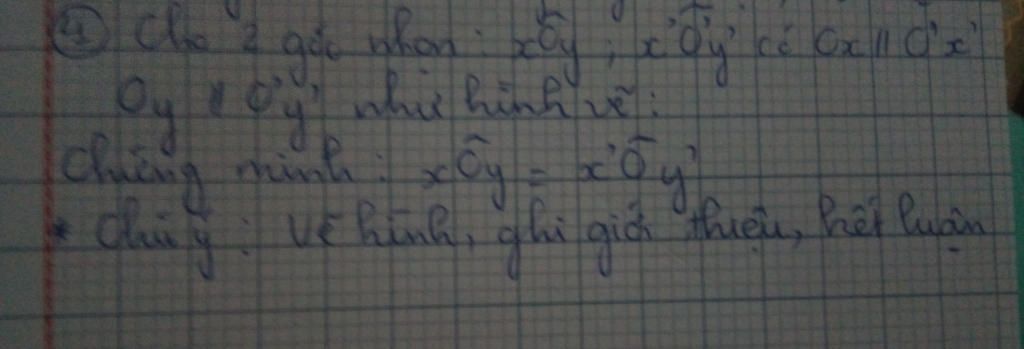 ④ Cho 2 góc nhọn: xÔy; x'Ô'y' có Ox // O'x'
Oy // O'y' như hình vẽ:
Chứng minh: xÔy = x'Ô'y'
* Chú ý: Vẽ hình, ghi giới thiệu, kết luận